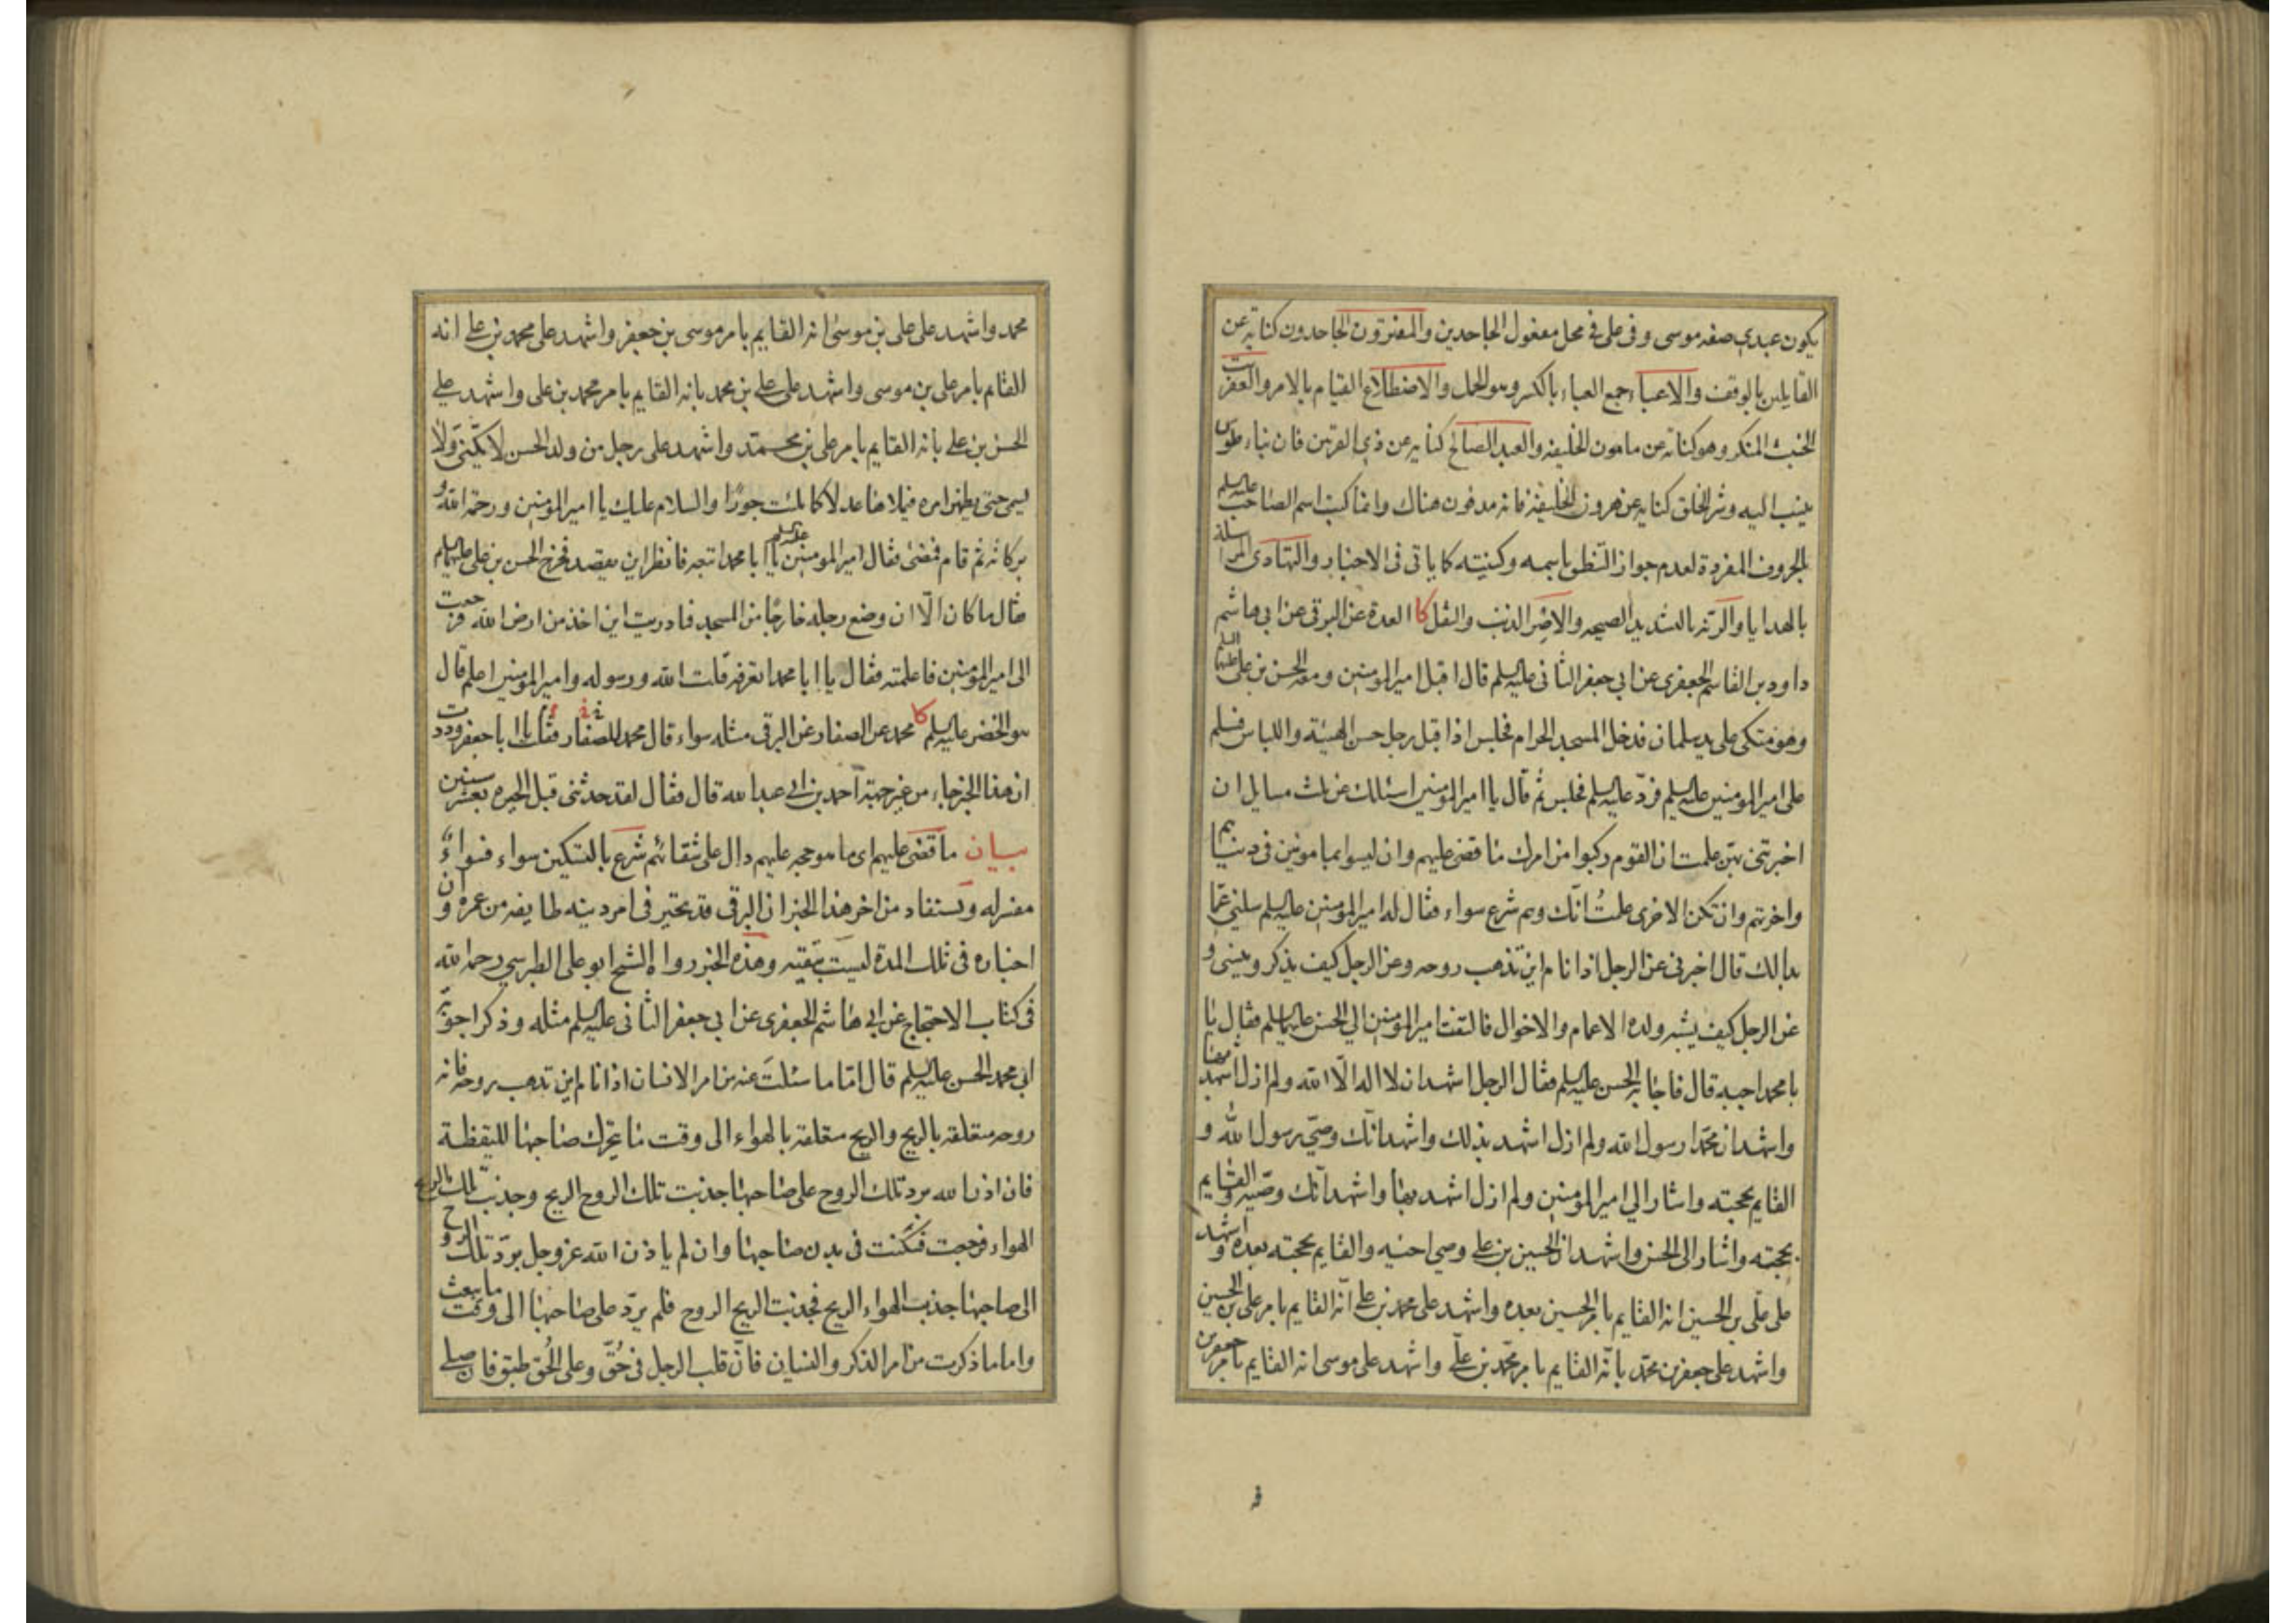 يكون عبدي صفه موسى وفي على في محل مفعول الجاحدين والمفترون الجاحدون كناية عن
القايلين بالوقف والاعباء جمع العباء بالكسر وهو الحمل والاضطلاع القيام بالامر والعفريت
الخبيث المنكر وهو كناية عن مامون الخليفه والعبد الصالح كناية عن ذي القرنين فان بناء طوس
ينسب اليه وشر الخلق كناية عن هرون الخليفة فانه مدفون هناك وانما كتبت اسم الصاحب عليه السلم
بالحروف المفردة لعدم جواز التنطق باسمه وكنيته كما ياتي في الاخبار والتهادى المراسلة
بالهدايا والرنه بالتشديد الصيحه والاصر الذنب والثقل كا العدة عن البرقي عن ابي هاشم
داود بن القاسم الجعفرى عن ابي جعفر الثاني عليه السلم قال اقبل امير المومنين ومعه الحسن بن على عليهما السلم
وهو متكى على يد سلمان فدخل المسجد الحرام فجلس اذا قبل رجل حسن الهيئة واللباس فسلم
على امير المومنين عليه السلم فردّ عليه السلم فجلس ثم قال يا امير المومنين اسئلك عن ثلث مسايل ان
اخبرتنى بهنّ علمت ان القوم ركبوا من امرك ما قضى عليهم وان ليسوا بمامونين في دنياهم
واخرتهم وان تكن الاخرى علمتُ انّك وهم شرع سواء فقال له امير المومنين عليه السلم سلني عمّا
بدا لك قال اخبرنى عن الرجل اذا نام اين تذهب روحه وعن الرجل كيف يذكر وينسى و
عن الرجل كيف يشبه ولده الاعمام والاخوال فالتفت امير المومنين الي الحسن عليهما السلم فقال يا
با محمد اجبه قال فاجابه الحسن عليه السلم فقال الرجل اشهد ان لا اله الّا الله ولم ازل اشهد بها
واشهد ان محمّدا رسول الله ولم ازل اشهد بذلك واشهد انّك وصيّ رسول الله و
القايم بحجته واشار الي امير المومنين ولم ازل اشهد بها واشهد انّك وصيّه والقايم
بحجته واشار الى الحسن واشهد ان الحسين بن على وصي اخيه والقايم بحجته بعده واشهد
على علّى بن الحسين انه القايم بامر الحسين بعده واشهد على محمد بن على انّه القايم بامر على بن الحسين
واشهد على جعفر بن محمّد بانّه القايم بامر محمّد بن علىّ واشهد على موسى انه القايم بامر جعفر بن
محمد واشهد على على بن موسىٰ انه القايم بامر موسى بن جعفر واشهد على محمد بن على انه
القايم بامر على بن موسى واشهد على على بن محمد بانه القايم بامر محمد بن على واشهد على
الحسن بن على بانه القايم بامر على بن محمد واشهد على رجل من ولد الحسن لا يكنّى ولا
يسمى حتى يظهر امره فيملاها عدلا كما ملئت جورًا والسلام عليك يا امير المومنين ورحمة الله و
بركاته ثم قام فمضى فقال امير المومنين عليه السلم يا ابا محمد اتبعه فانظر اين يقصد فخرج الحسن بن على عليهما السلم
فقال ما كان الّا ان وضع رجله خارجًا من المسجد فما دريت اين اخذ من ارض الله فرجعت
الى امير المؤمنين فاعلمته فقال يا ابا محمد اتعرفه قلت الله ورسوله وامير المؤمنين اعلم قال
هو الخضر عليه السلم كا محمد عن الصفار عن البرقى مثله سواء قال محمد للصفار فقلت يا ابا جعفر وددت
ان هذا الخبر جاء من غير جهة احمد بن ابى عبد الله قال فقال لقد حدثنى قبل الحيرة بعشر سنين
بيان ما قضى عليهم اى ما هو حجه عليهم دال على شقائهم شرع بالتسكين سواء فسواءٌ
مفسر له ويستفاد من اخر هذا الخبر ان البرقى قد تحير في امر دينه طايفه من عمره وان
اخباره في تلك المدة ليست بنقيّه وهذه الخبر رواه الشيخ ابو على الطبرسي رحمه الله
في كتاب الاحتجاج عن ابى هاشم الجعفرى عن ابي جعفر الثاني عليه السلم مثله وذكر اجوبة
ابى محمد الحسن عليه السلم قال امّا ما سئلتَ عنه من امر الانسان اذا نام اين تذهب روحه فانه
روحه متعلقه بالريح والريح متعلقه بالهواء الى وقت ما يتحرك صاحبها لليقظة
فان اذن الله برد تلك الروح على صاحبها جذبت تلك الروح الريح وجذبت تلك الريح
الهواء فرجعت فسكنت في بدن صاحبها وان لم ياذن الله عز وجل بردّ تلك الروح
الى صاحبها جذب الهواء الريح فجذبت الريح الروح فلم يردّ على صاحبها الى وقت ما يبعث
واما ما ذكرت من امر الذكر والنسيان فانّ قلب الرجل في حُقّ وعلى الحُق طبق فان صلى